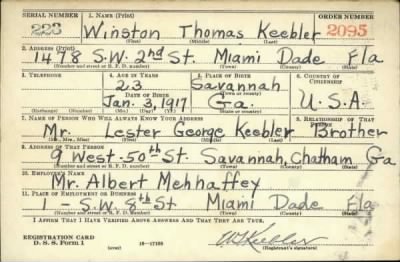 SERIAL NUMBER 1. NAME (Print) ORDER NUMBER
223 Winston Thomas Keebler 2095
(First) (Middle) (Last)
2. ADDRESS (Print)
1478 S.W. 2nd St. Miami Dade Fla
(Number and street or R. F. D. number) (Town) (County) (State)
3. TELEPHONE 4. AGE IN YEARS 5. PLACE OF BIRTH 6. COUNTRY OF CITIZENSHIP
23 Savannah
DATE OF BIRTH (Town or county)
Jan. 3, 1917 Ga. U.S.A.
(Exchange) (Number) (Mo.) (Day) (Yr.) (State or country)
7. NAME OF PERSON WHO WILL ALWAYS KNOW YOUR ADDRESS 8. RELATIONSHIP OF THAT PERSON
Mr. Lester George Keebler Brother
(Mr., Mrs., Miss) (First) (Middle) (Last)
9. ADDRESS OF THAT PERSON
9 West 50th St. Savannah, Chatham Ga
(Number and street or R. F. D. number) (Town) (County) (State)
10. EMPLOYER'S NAME
Mr. Albert Mehhaffey
11. PLACE OF EMPLOYMENT OR BUSINESS
1 - S.W. 8th St Miami Dade Fla
(Number and street or R. F. D. number) (Town) (County) (State)
I AFFIRM THAT I HAVE VERIFIED ABOVE ANSWERS AND THAT THEY ARE TRUE.
REGISTRATION CARD
D. S. S. Form 1 (over) W T Keebler
(Registrant's signature)